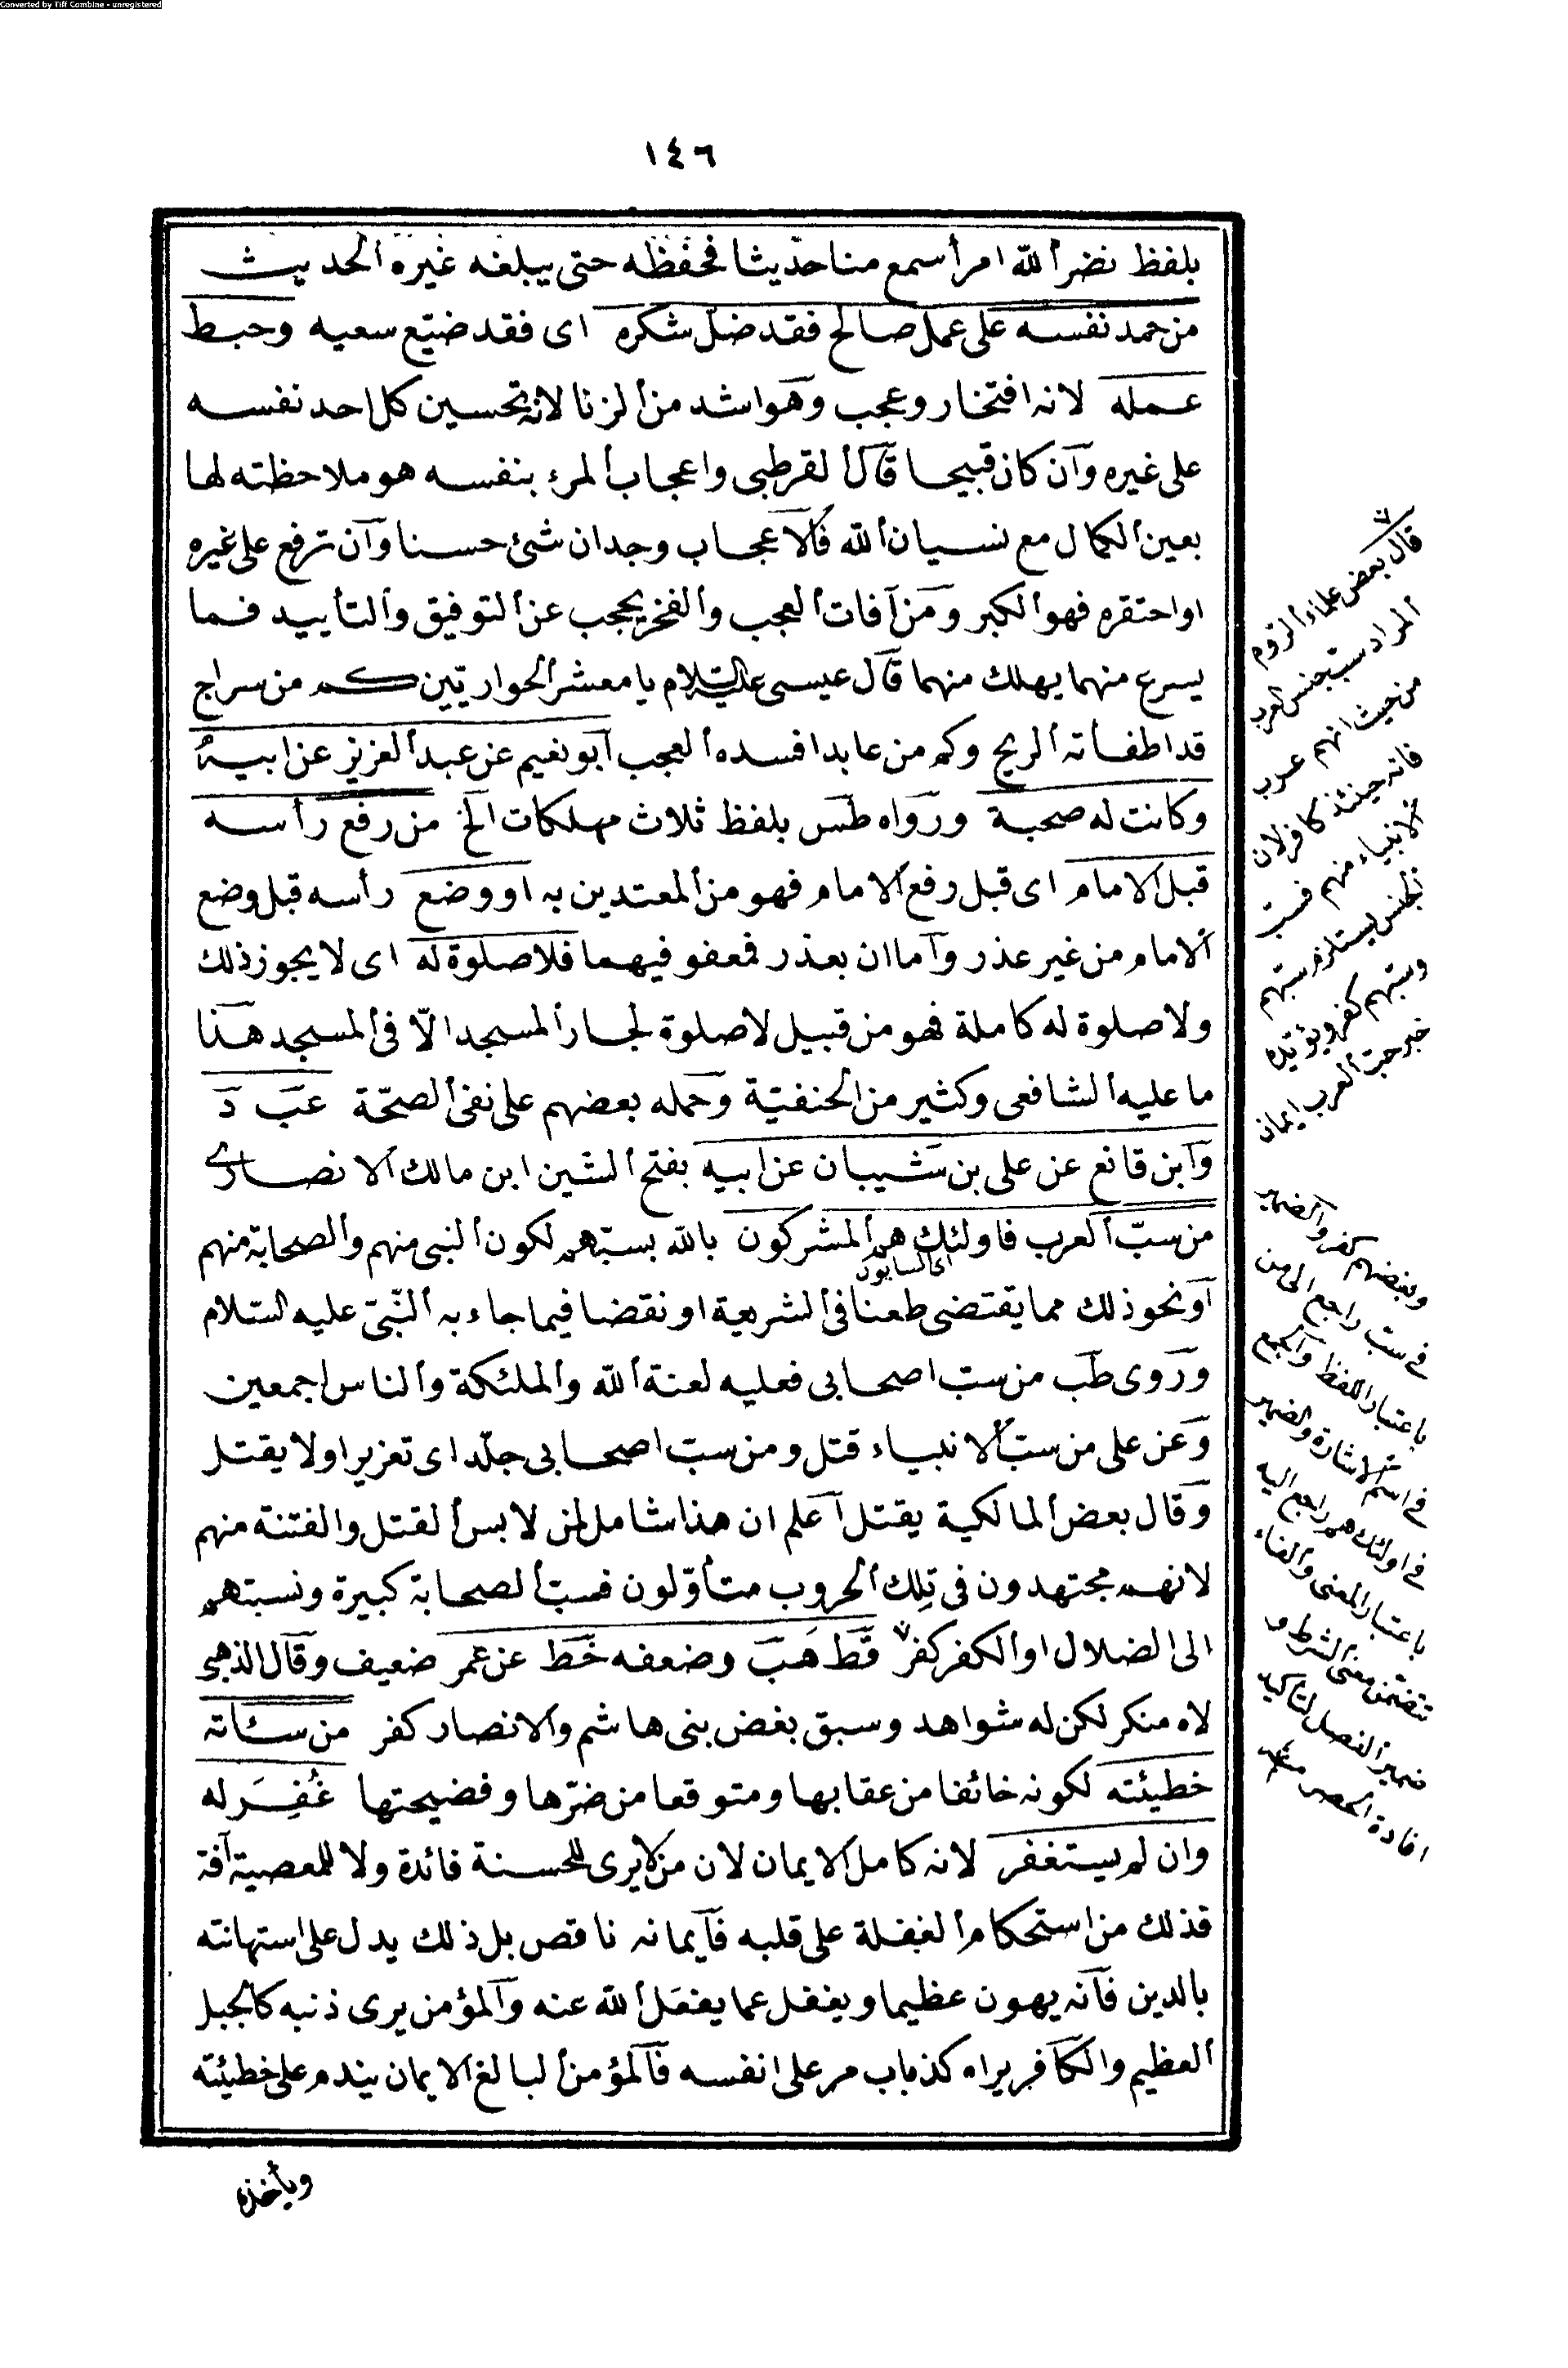 Converted by Tiff Combine - unregistered
١٤٦
بلفظ نضر الله امرأ سمع منا حديثا فحفظه حتى يبلغه غيره الحديث
من حمد نفسه على عمل صالح فقد ضل شكره اى فقد ضيع سعيه وحبط
عمله لانه افتخار وعجب وهو اشد من الزنا لانه تحسين كل احد نفسه
على غيره وان كان قبيحا قال القرطبى واعجاب المرء بنفسه هو ملاحظته لها
بعين الكمال مع نسيان الله فالاعجاب وجدان شئ حسنا وان ترفع على غيره
او احتقره فهو الكبر ومن آفات العجب والفخر يحجب عن التوفيق والتأييد فما
يسرع منهما يهلك منهما قال عيسى عليه السلام يا معشر الحواريين كم من سراج
قد اطفأته الريح وكم من عابد افسده العجب ابو نعيم عن عبد العزيز عن ابيه
وكانت له صحبة ورواه طس بلفظ ثلاث مهلكات الخ من رفع رأسه
قبل الامام اى قبل رفع الامام فهو من المعتدين به او وضع رأسه قبل وضع
الامام من غير عذر واما ان بعذر فمعفو فيهما فلا صلوة له اى لا يجوز ذلك
ولا صلوة له كاملة فهو من قبيل لا صلوة لجار المسجد الا فى المسجد هذا
ما عليه الشافعى وكثير من الحنفية وحمله بعضهم على نفى الصحة عب د
وابن قانع عن على بن شيبان عن ابيه بفتح الشين ابن مالك الانصارى
من سب العرب فاولئك هم المشركون بالله بسبهم لكون النبى منهم والصحابة منهم
اى السابون
او نحو ذلك مما يقتضى طعنا فى الشريعة او نقضا فيما جاء به النبى عليه السلام
وروى طب من سب اصحابى فعليه لعنة الله والملئكة والناس اجمعين
وعن على من سب الانبياء قتل ومن سب اصحابى جلد اى تعزيرا ولا يقتل
وقال بعض المالكية يقتل اعلم ان هذا شامل لمن لابس القتل والفتنة منهم
لانهم مجتهدون فى تلك الحروب متأولون فسب الصحابة كبيرة ونسبتهم
الى الضلال او الكفر كفر قط هب وضعفه خط عن عمر ضعيف وقال الذهبى
لاه منكر لكن له شواهد وسبق بغض بنى هاشم والانصار كفر من سئاته
خطيئته لكونه خائفا من عقابها ومتوقعا من ضرها وفضيحتها غُفِرَ له
وان لم يستغفر لانه كامل الايمان لان من لا يرى للحسنة فائدة ولا للمعصية آفة
فذلك من استحكام الغفلة على قلبه فايمانه ناقص بل ذلك يدل على استهانته
بالدين فانه يهون عظيما ويغفل عما يغفل الله عنه والمؤمن يرى ذنبه كالجبل
العظيم والكافر يراه كذباب مر على انفسه فالمؤمن البالغ الايمان يندم على خطيئته
ويأخذه
قال بعض علماء الروم
المراد سب جنس العرب
من حيث انهم عرب
فانه حينئذ كافر لان
الانبياء منهم فسب
الجنس يستلزم سبهم
وسبهم كفر ويؤيده
خبر حب العرب ايمان
وبغضهم كفر والضمير
فى سب راجع الى من
باعتبار اللفظ والجمع
فى اسم الاشارة والضمير
فى اولئك هم راجع اليه
باعتبار المعنى والفاء
تتضمن معنى الشرط و
ضمير الفصل لتأكيد
افادة الحصر منه